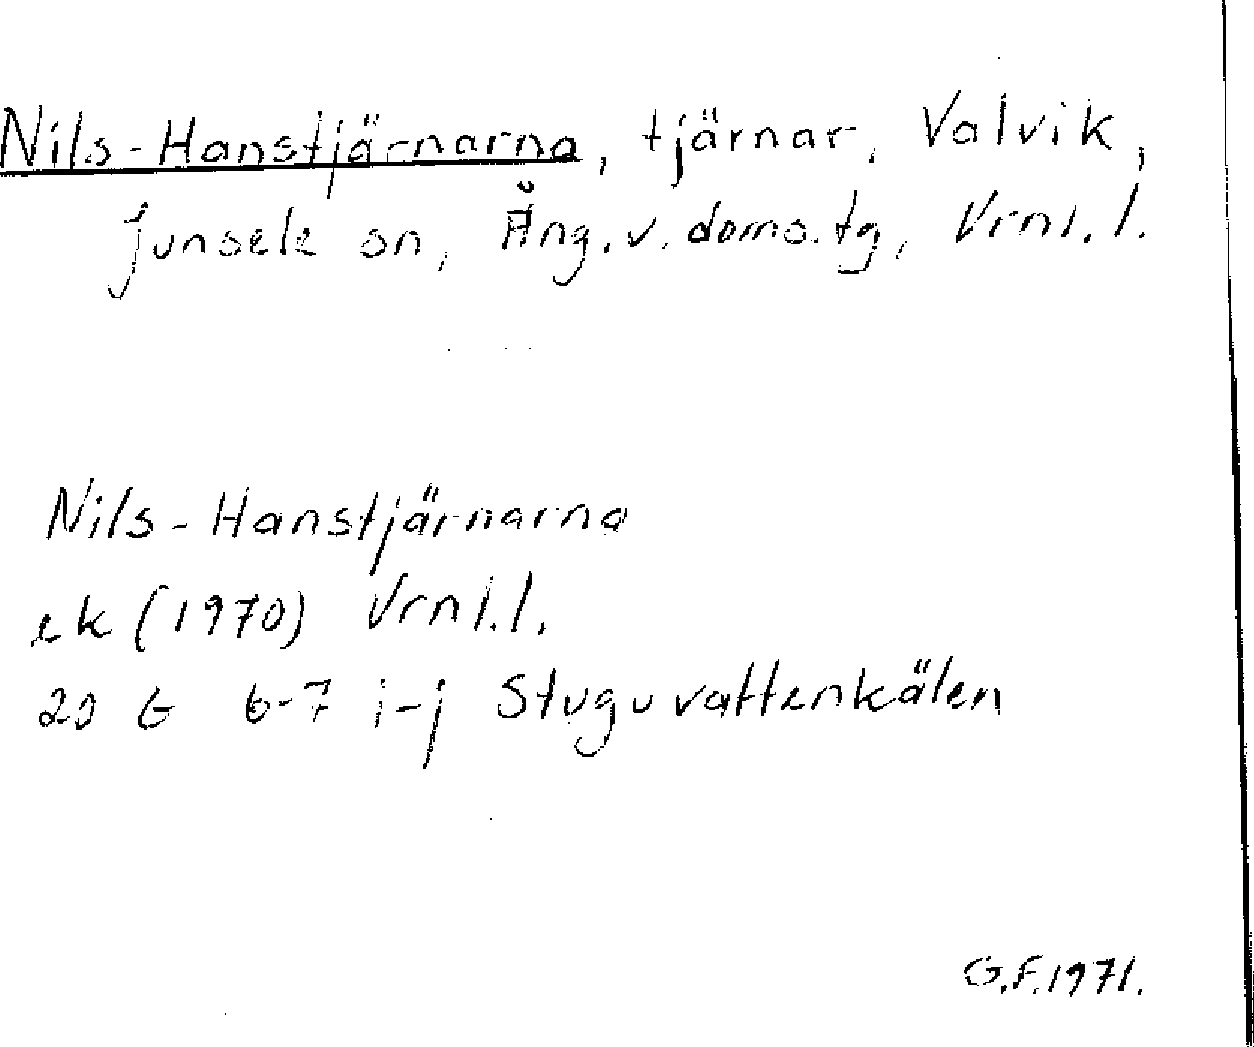 Nils-Hanstjärnarna, tjärnar, Valvik,
Junsele sn, Ång. v. doms.tg, Vrnl. l.
Nils-Hanstjärnarna
ek (1970) Vrnl. l.
20 G 6-7 i-j Stuguvattenkälen
G.F. 1971.